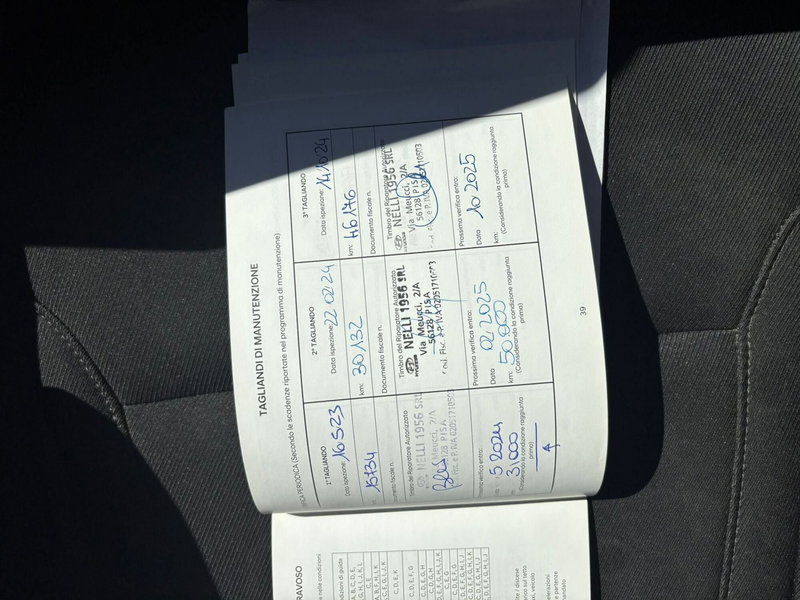 TAGLIANDI DI MANUTENZIONE
PERIODICA (Secondo le scadenze riportate nel programma di manutenzione)
1° TAGLIANDO
Data ispezione: 16 5 23
15734
Documento fiscale n.
Timbro del Riparatore Autorizzato
NELLI 1956 SRL
Meucci, 2/A
56128 PISA
Fisc. e P. IVA 02051710503
verifica entro:
5 2024
31000
(Considerando la condizione raggiunta
prima)
2° TAGLIANDO
Data ispezione: 22 02 24
km: 30 132
Documento fiscale n.
Timbro del Riparatore Autorizzato
NELLI 1956 SRL
Via Meucci, 2/A
56128 PISA
Cod. Fisc. e P. IVA 02051710503
Prossima verifica entro:
Data 02 2025
km: 50.000
(Considerando la condizione raggiunta
prima)
3° TAGLIANDO
Data ispezione: 14/10/24
km: 46176
Documento fiscale n.
Timbro del Riparatore Autorizzato
NELLI 1956 SRL
Via Meucci, 2/A
56128 PISA
Cod. Fisc. e P. IVA 02051710503
Prossima verifica entro:
Data 10 2025
km:
(Considerando la condizione raggiunta
prima)
39
RAVOSO
nelle condizioni
di guida
C, E
C, D, E, K
C, D, E, F, G
C, D, G, H
C, E, G
C, D, E, F, G